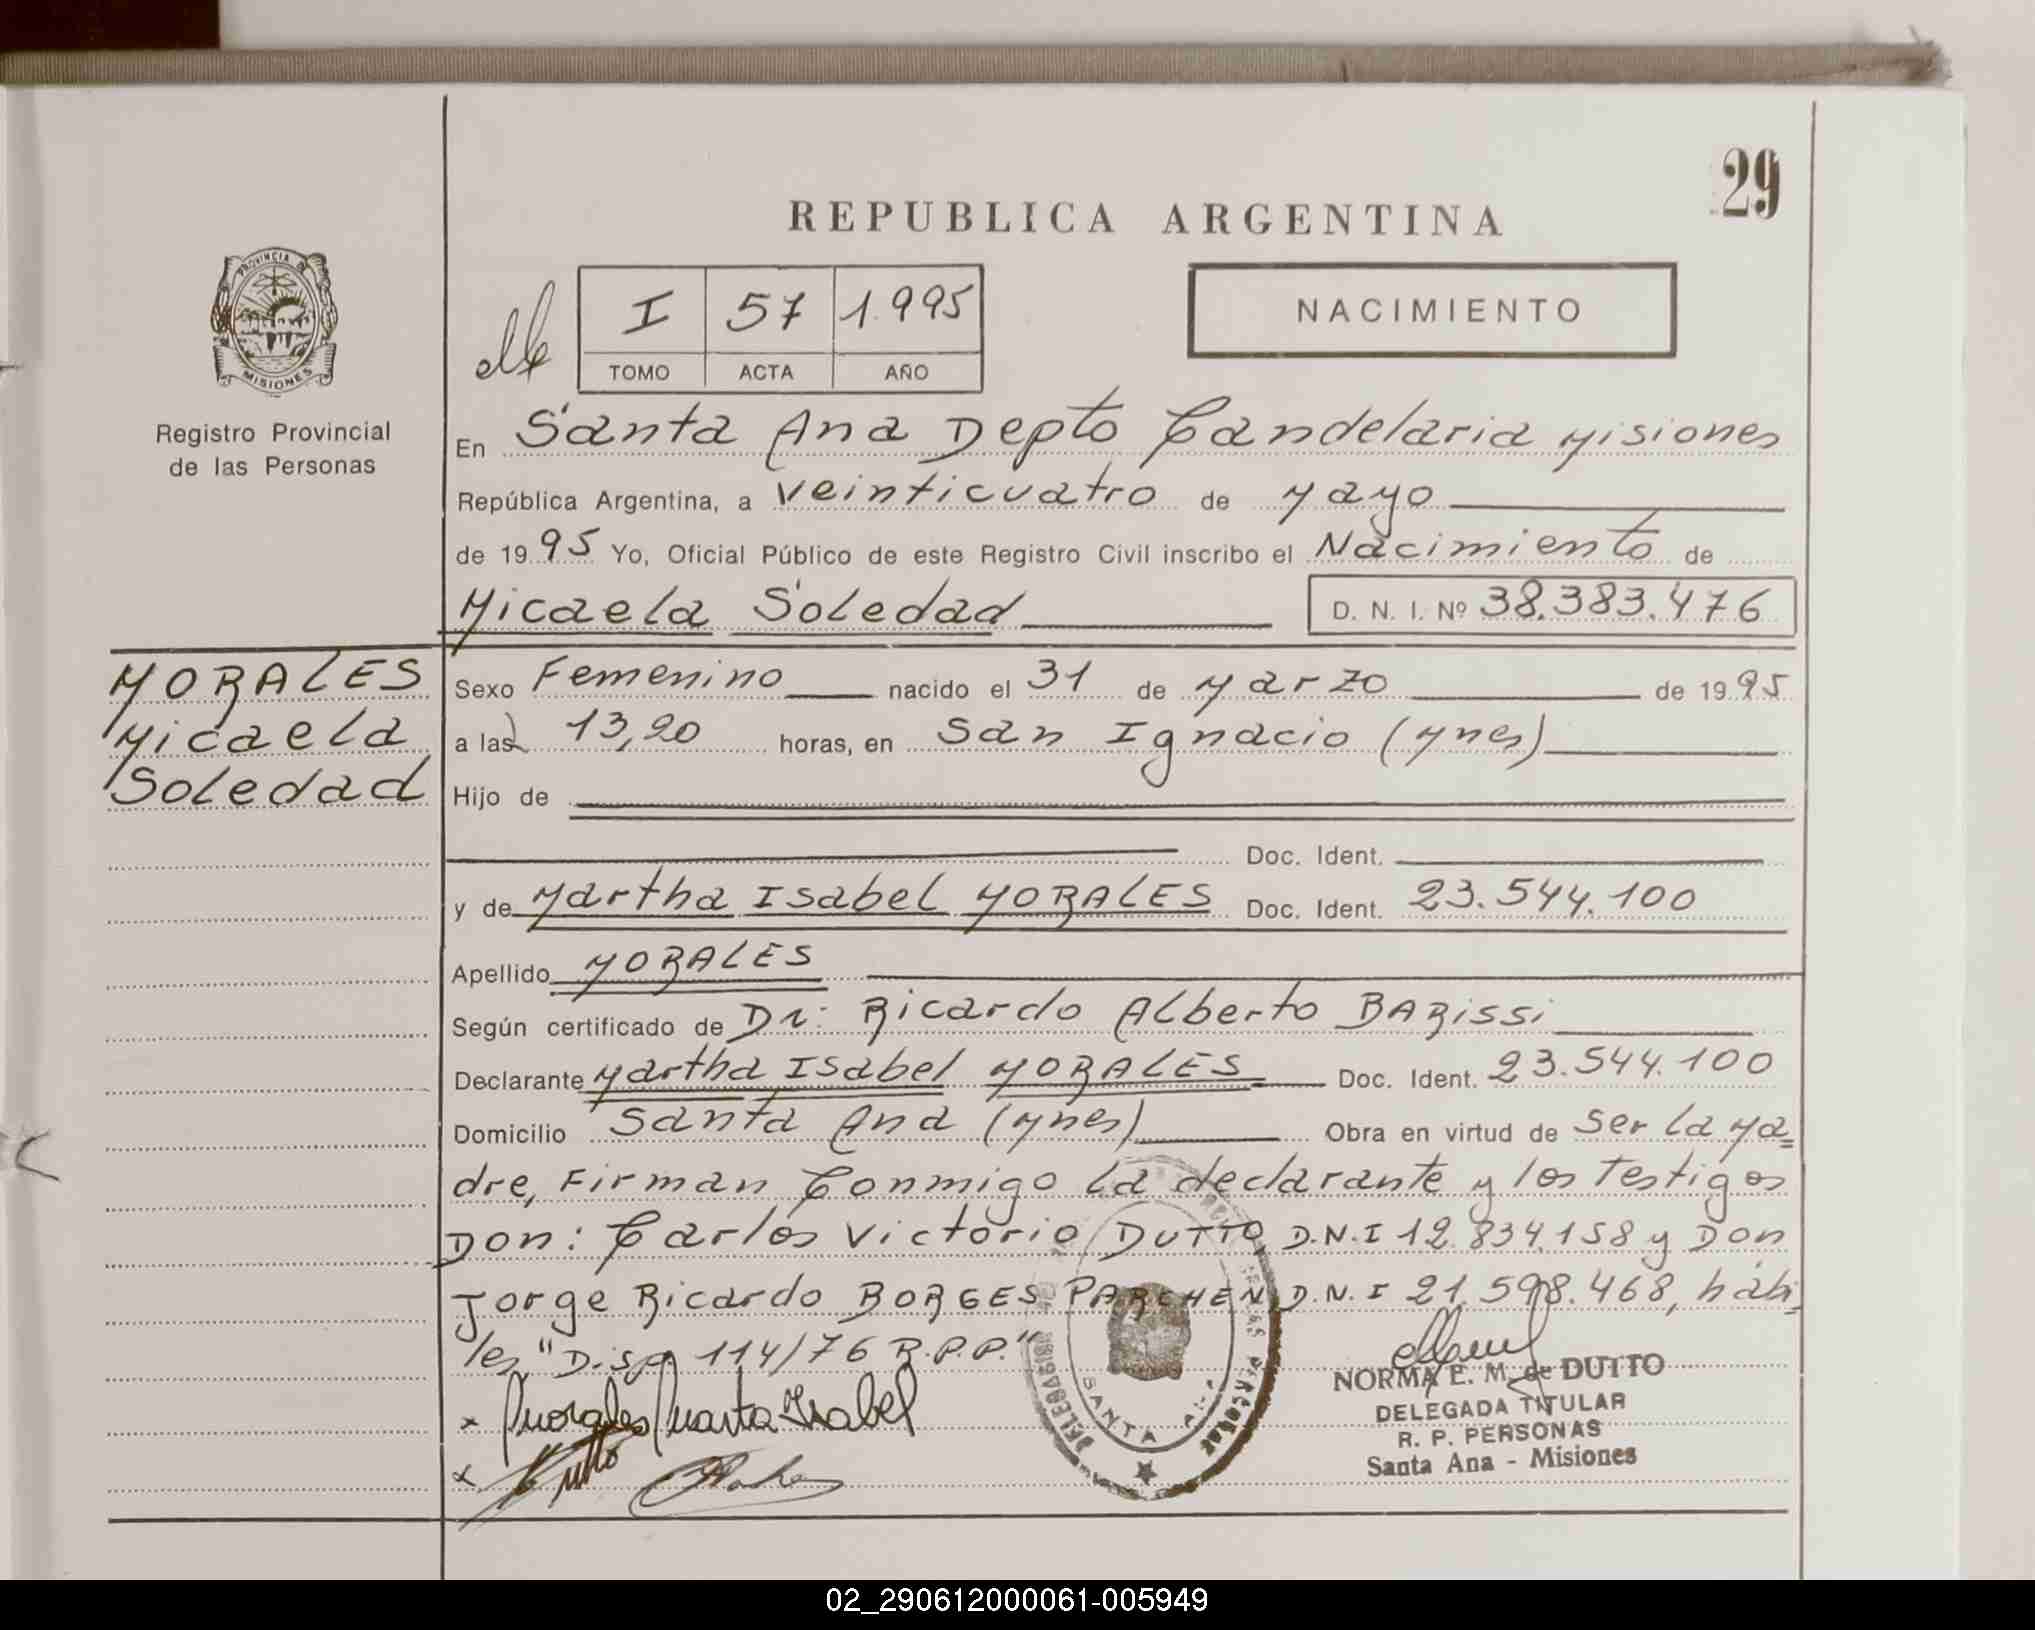 29
REPUBLICA ARGENTINA
PROVINCIA DE
MISIONES
Registro Provincial
de las Personas
I 57 1.995
TOMO ACTA AÑO
NACIMIENTO
En Santa Ana Depto Candelaria Misiones
República Argentina, a veinticuatro de Mayo
de 19 95 Yo, Oficial Público de este Registro Civil inscribo el Nacimiento de
Micaela Soledad D. N. I. Nº 38.383.476
MORALES
Micaela
Soledad
Sexo Femenino nacido el 31 de Marzo de 19 95
a las 13,20 horas, en San Ignacio (Mnes)
Hijo de
Doc. Ident.
y de Martha Isabel MORALES Doc. Ident. 23.544.100
Apellido MORALES
Según certificado de Dr: Ricardo Alberto BARissi
Declarante Martha Isabel MORALES Doc. Ident. 23.544.100
Domicilio Santa Ana (Mnes) Obra en virtud de ser la Ma=
dre, Firman Conmigo la declarante y los Testigos
Don: Carlos Victorio DUTTO D.N.I 12.834.158 y Don
Jorge Ricardo BORGES PARCHEN D.N.I 21.598.468, hábi
les "Disp. 114/76 R.P.P."
x Morales Marta Isabel
x Dutto
SANTA ANA
NORMA E. M. de DUTTO
DELEGADA TITULAR
R. P. PERSONAS
Santa Ana - Misiones
02_290612000061-005949